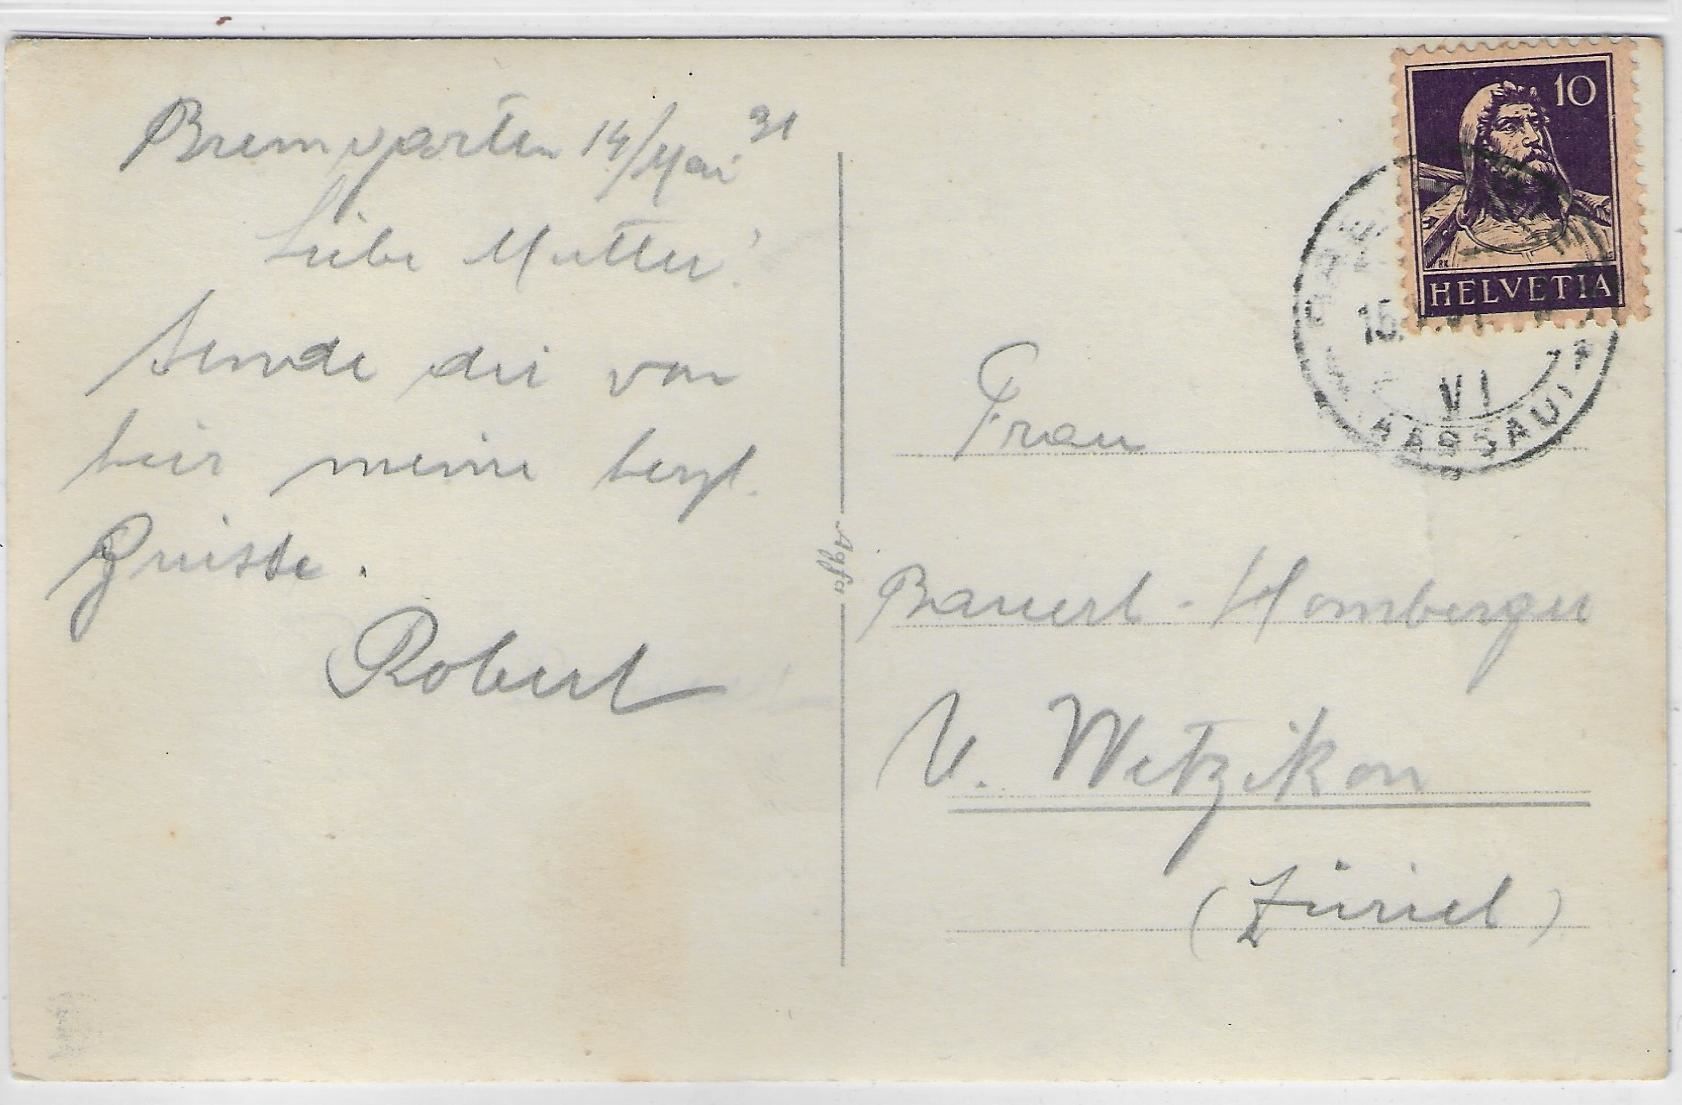 Bremgarten 14/Mai 31
Liebe Mutter!
Sende dir von
hier meine herzl.
Grüsse.
Robert
Agfa
10
HELVETIA
15.
VI
(AARGAU)
Frau
Bauert-Homberger
U. Wetzikon
(Zürich)